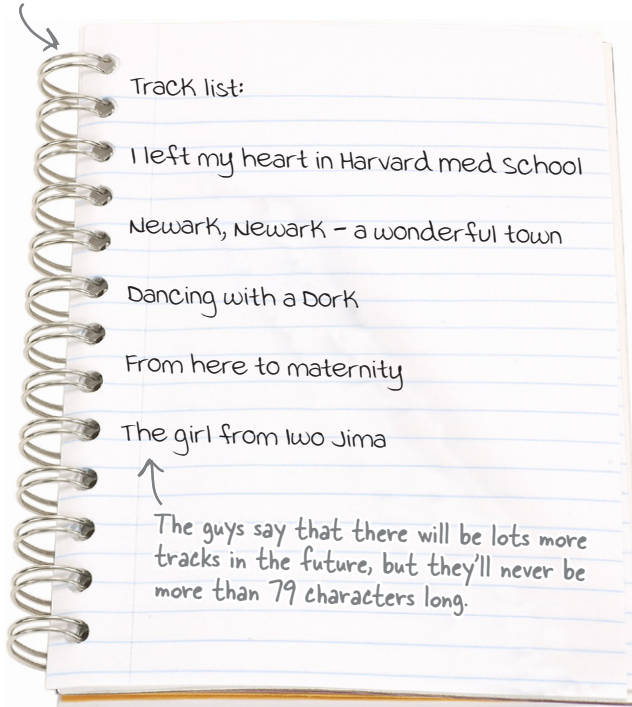 Track list:
I left my heart in Harvard med school
Newark, Newark - a wonderful town
Dancing with a Dork
From here to maternity
The girl from Iwo Jima
The guys say that there will be lots more
tracks in the future, but they'll never be
more than 79 characters long.